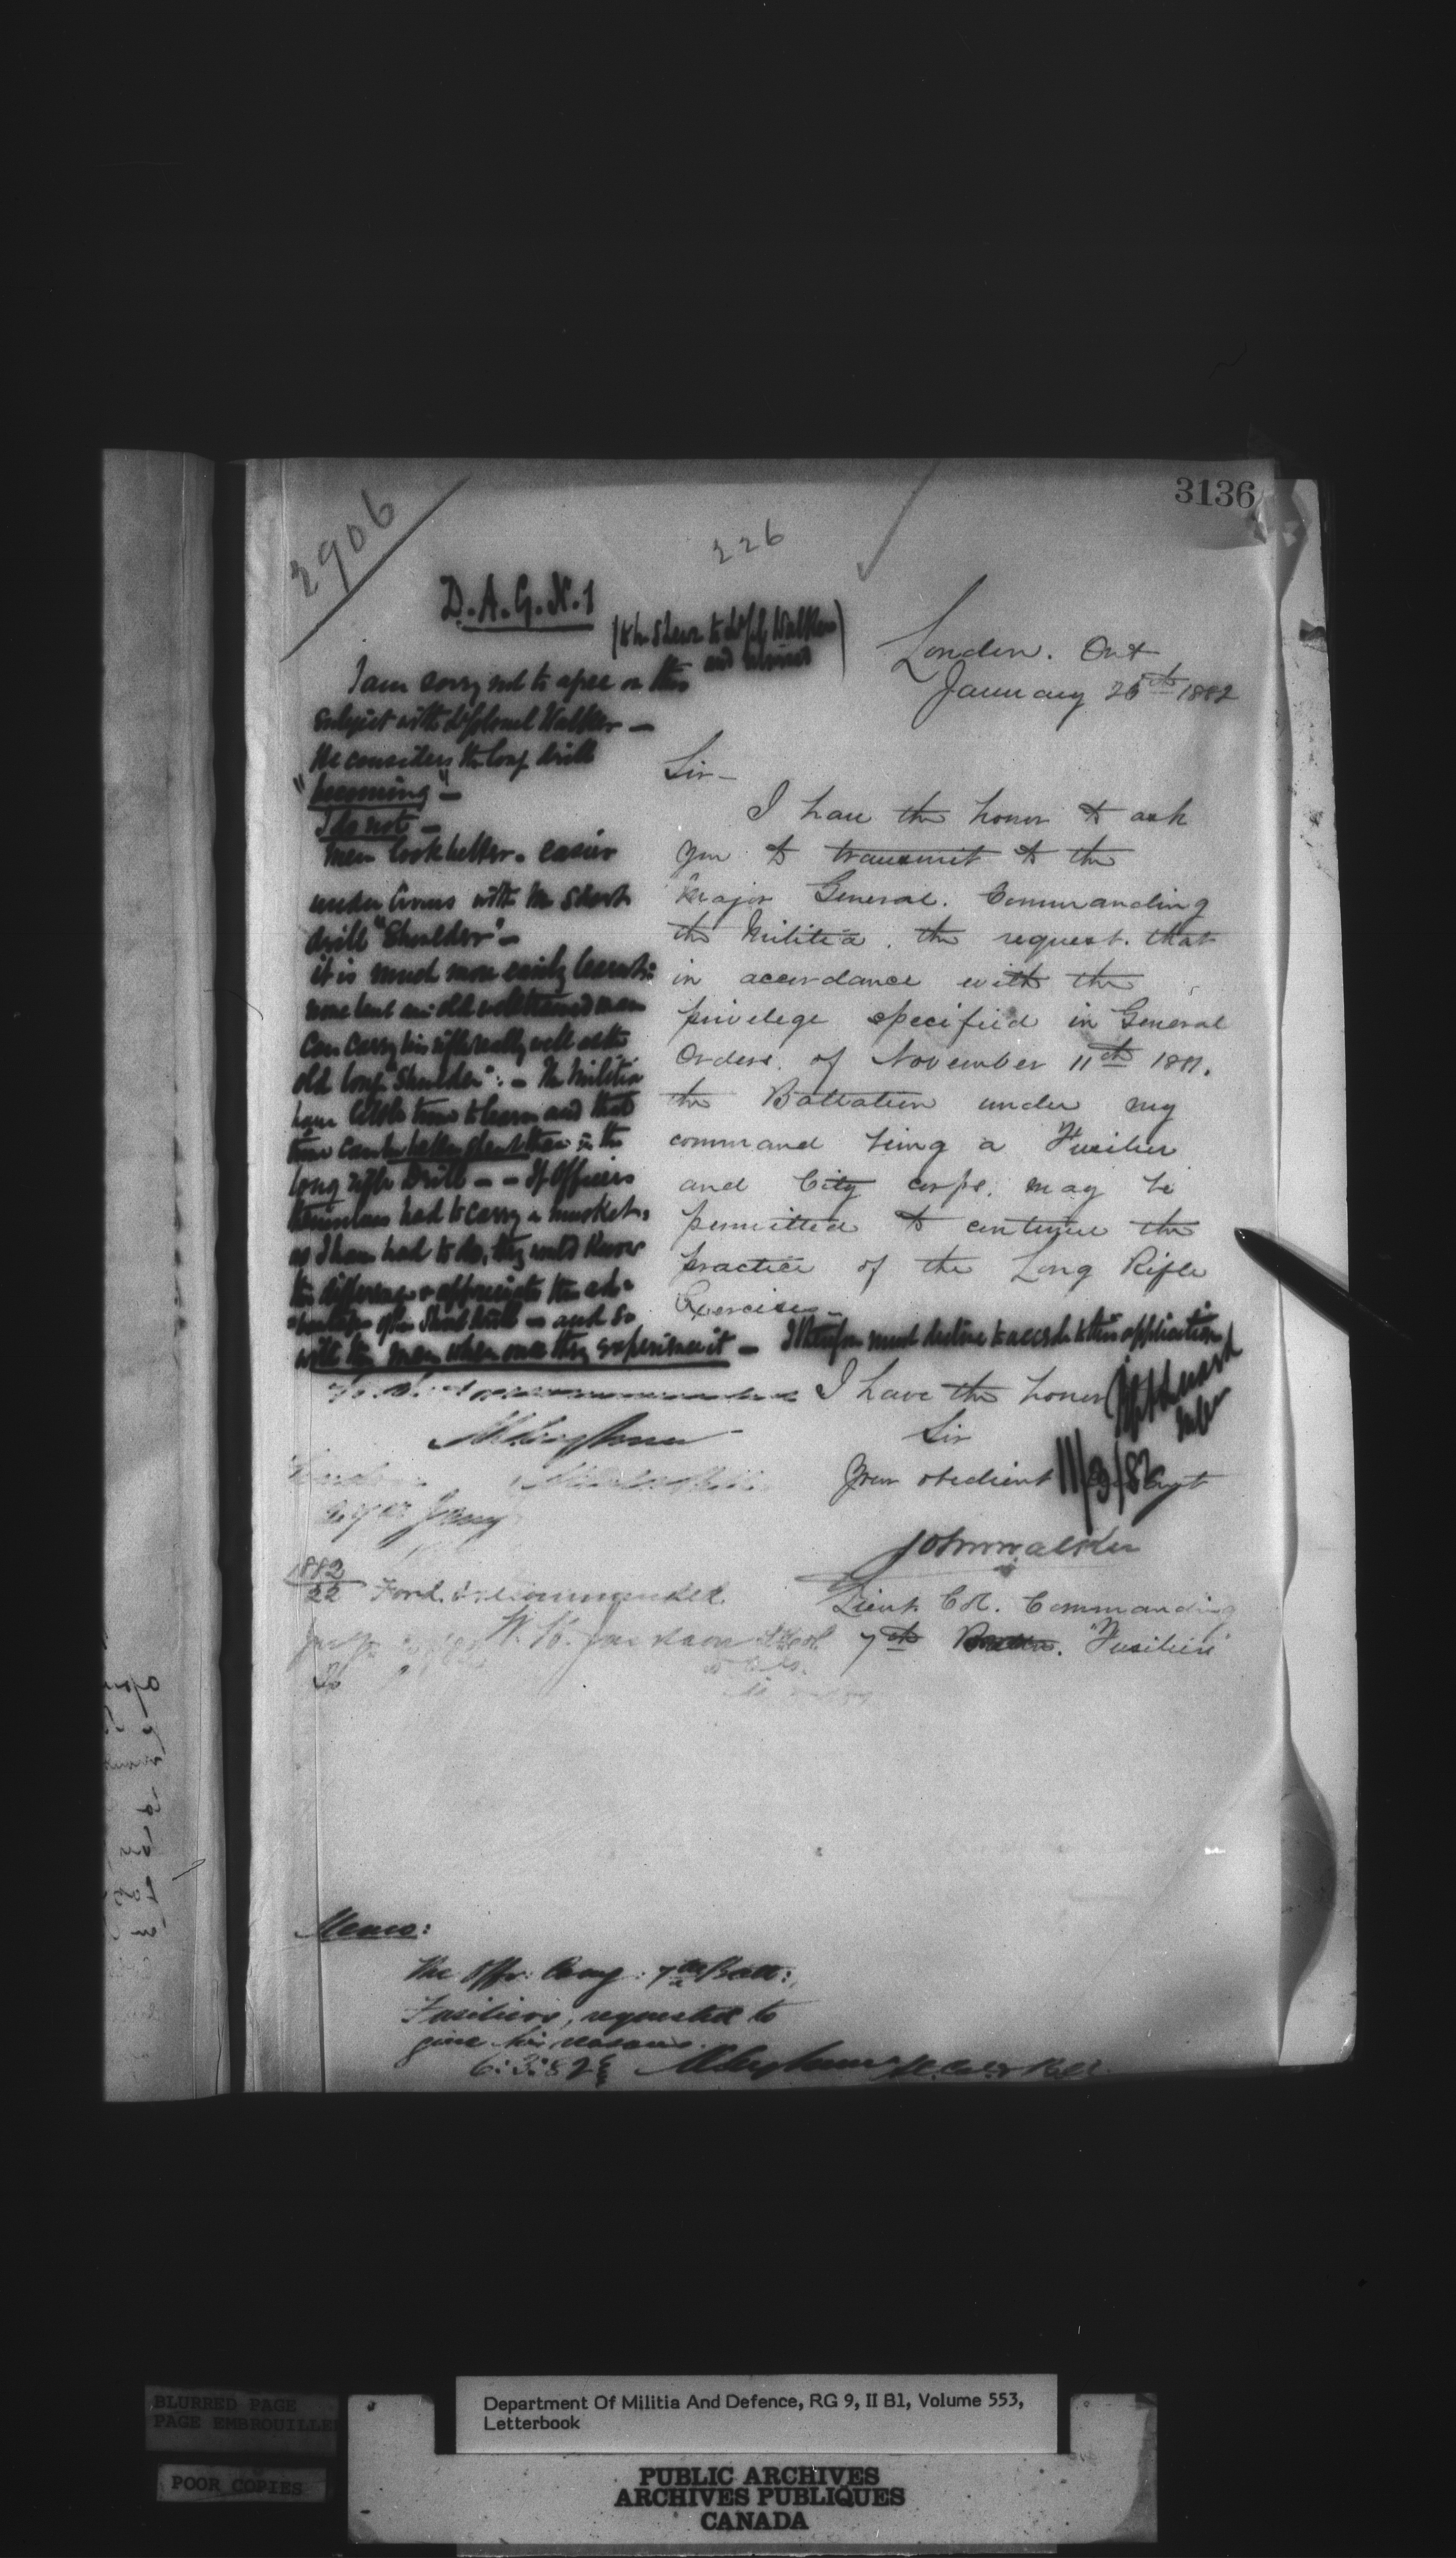 3136
2906
226
D.A.G. N.1
(to be shewn to Lt Col Walker
and returned)
I am sorry not to agree on this
subject with Lt Colonel Walker —
He considers the long drill
"becoming" —
I do not —
Men look better - easier
under Arms with the short
drill "Shoulder" —
it is much more easily learnt:
none but an old well trained man
can carry his rifle really well at the
old long "Shoulder": — The Militia
have little time to learn and that
time can be better spent than in the
long rifle Drill — — If Officers
themselves had to carry a musket,
as I have had to do, they would know
the difference & appreciate the ad-
-vantage of the Short drill — and so
with the men when once they experience it — I therefore must decline to accede to this application
11/3/82
London. Ont
January 26th 1882
Sir —
I have the honor to ask
you to transmit to the
Major General Commanding
the Militia, the request that
in accordance with the
privilege specified in General
Orders of November 11th 1881,
the Battalion under my
command being a Fusilier
and City corps, may be
permitted to continue the
practice of the Long Rifle
Exercise —
I have the honor
Sir
Your obedient
John Walker
Lieut. Col. Commanding
7th Battn. "Fusiliers"
1882
22 Ford. & recommended
W. H. Jackson Lt Col
Memo:
The Offr. Comg: 7th Batt:
Fusiliers, requested to
give his reasons.
6:3:82
BLURRED PAGE
PAGE EMBROUILLEE
POOR COPIES
Department Of Militia And Defence, RG 9, II B1, Volume 553,
Letterbook
PUBLIC ARCHIVES
ARCHIVES PUBLIQUES
CANADA